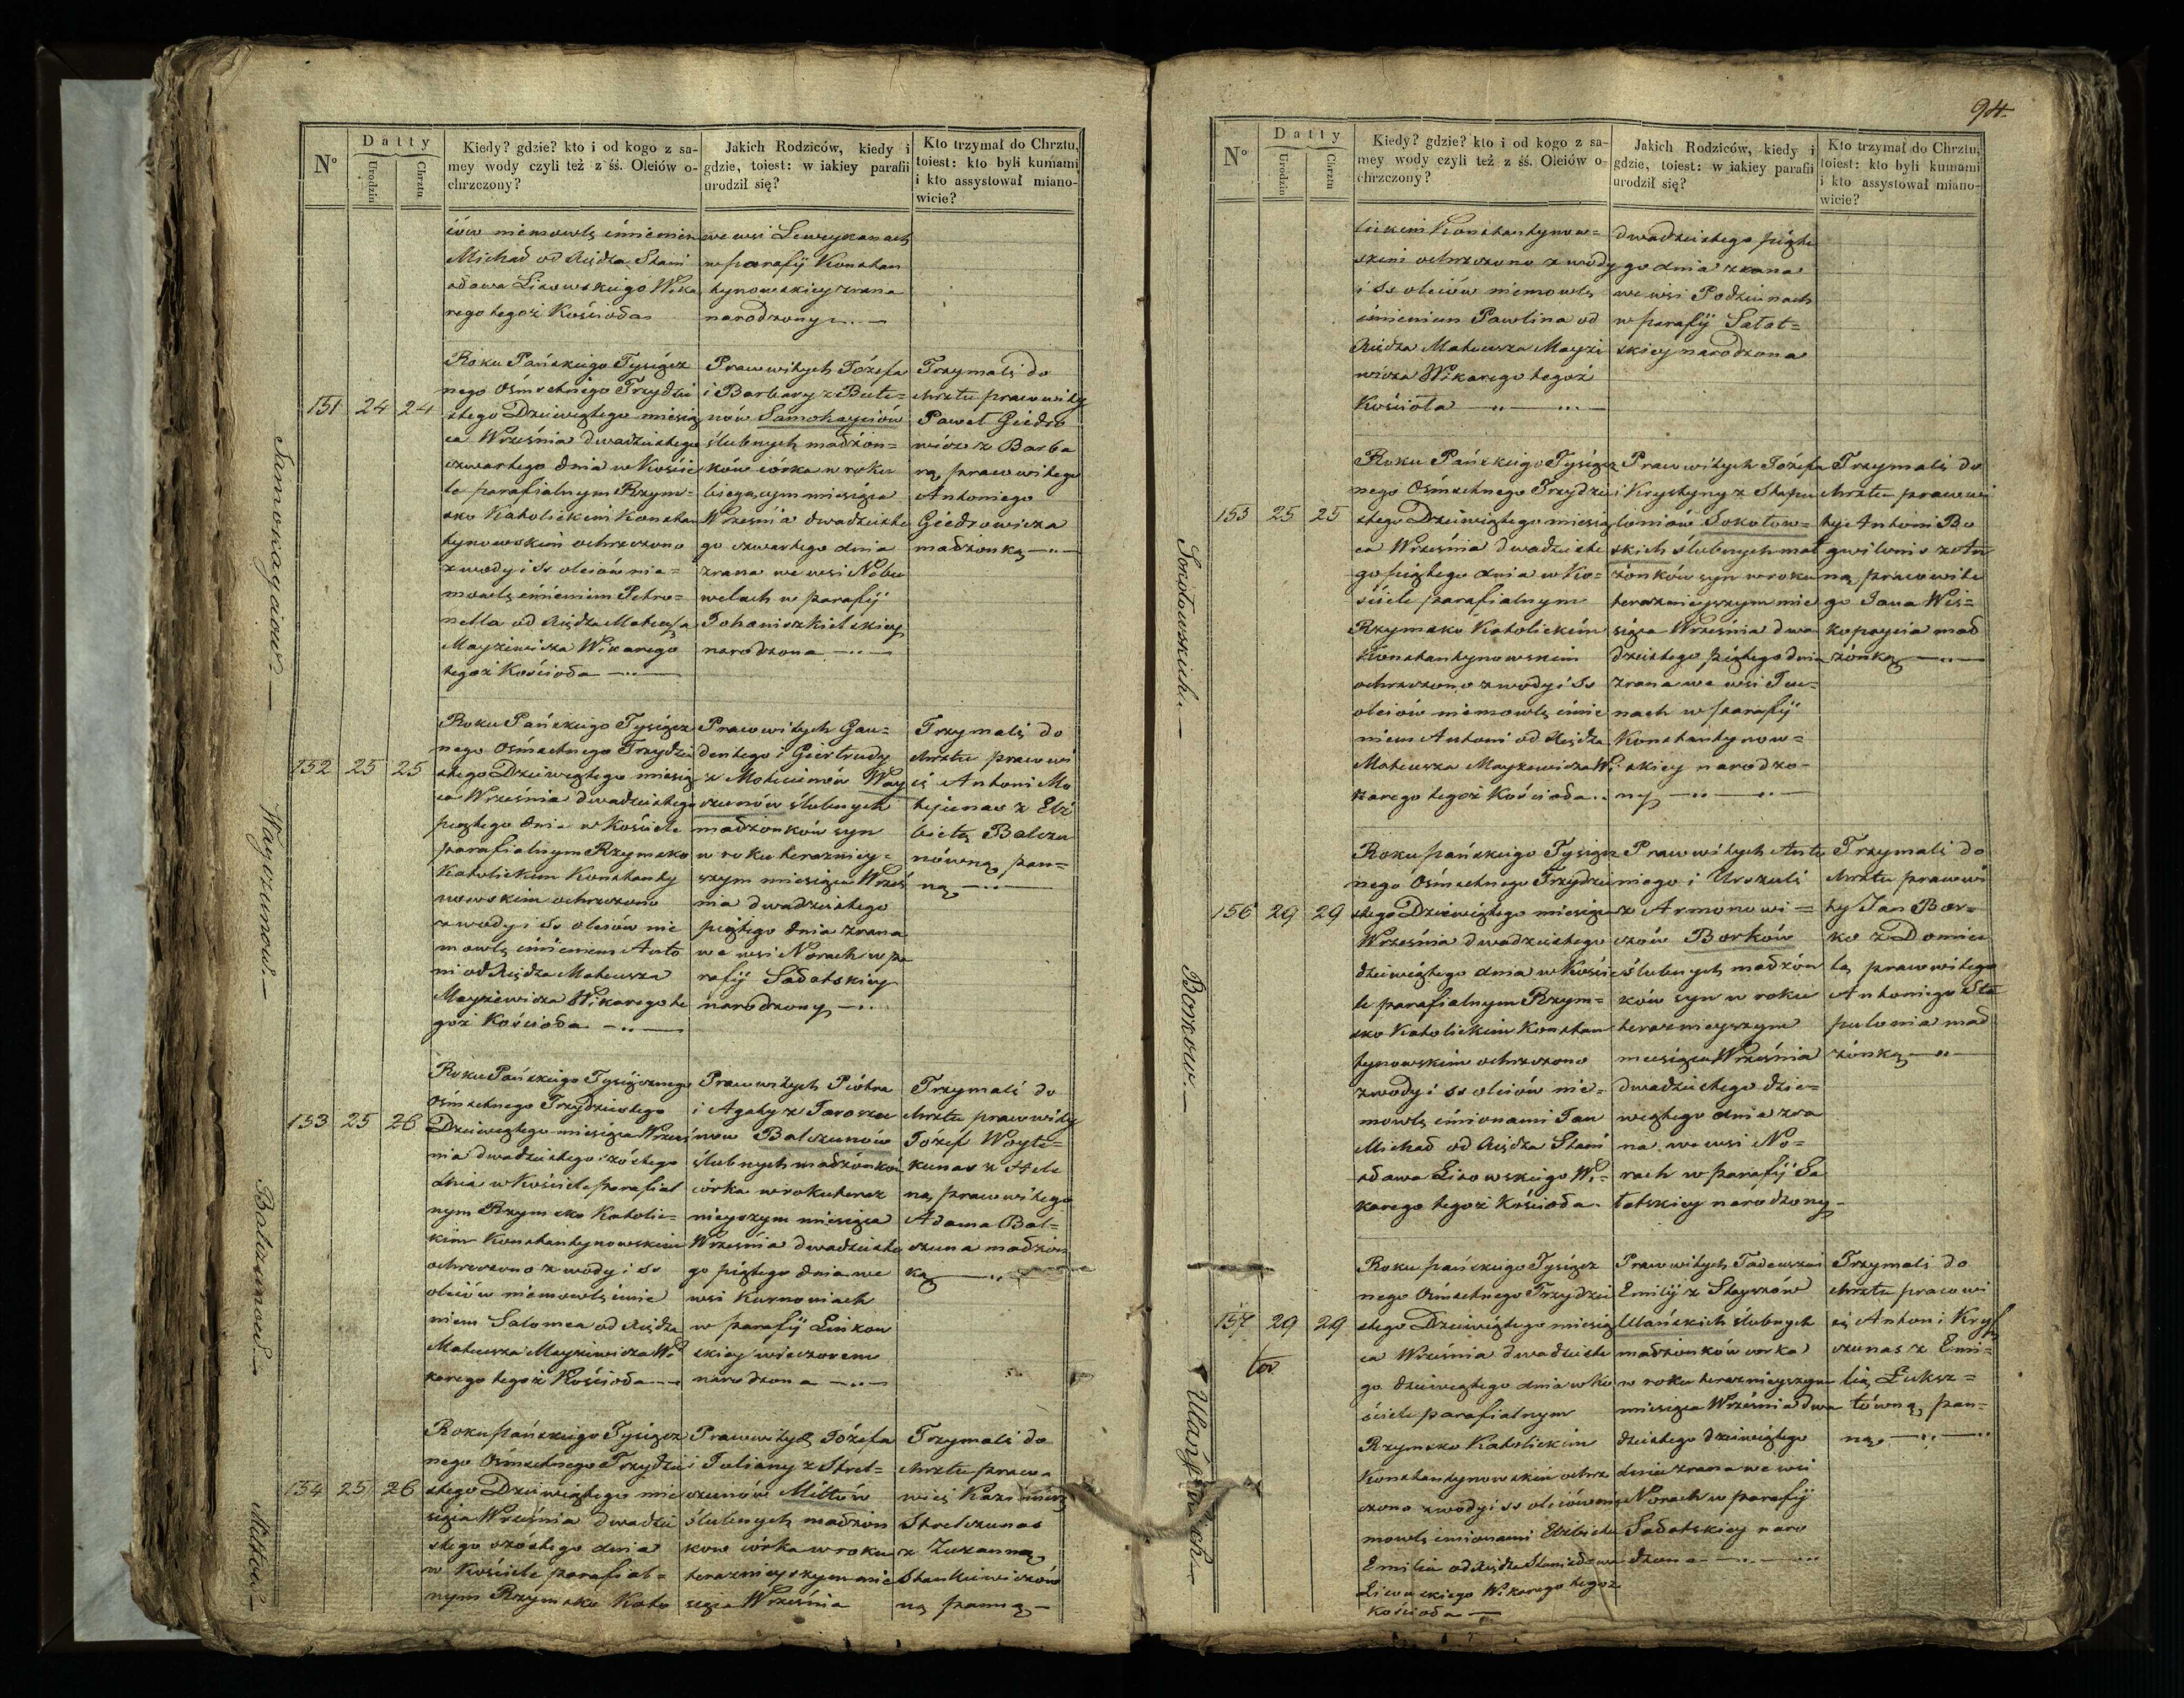 Nº
Datty
Urodzin
Chrztu
Kiedy? gdzie? kto i od kogo z sa-
mey wody czyli też z śś. Oleiów o-
chrzczony?
Jakich Rodziców, kiedy i
gdzie, toiest: w iakiey parafii
urodził się?
Kto trzymał do Chrztu,
toiest: kto byli kumami
i kto assystował miano-
wicie?
iów niemowlę imieniem
Michał od Xiędza Stani
sława Lisowskiego Wika
rego tegoż Kościoła
we wsi
w parafij Konstan
tynowskiey zrana
narodzony
Samokayciow.
151 24 24
Roku Pańskiego Tysiącz
nego Ośmsetnego Trzydzie
stego Dziewiątego miesią
ca Września dwudziestego
czwartego dnia w Koście
le parafialnym Rzym=
sko Katolickim Konstan
tynowskim ochrzczono
z wody i Ss oleiów nie=
mowlę imieniem Petro=
nella od Xiędza Mateusza
Mayziewicza Wikarego
tegoż Kościoła
Prawowitych Józefa
i Barbary z Bute=
nów Samokayciów
ślubnych małżon=
ków córka w roku
bieżącym miesiąca
Września dwudzieste
go czwartego dnia
zrana we wsi
w parafij
Johaniszkielskiey
narodzona
Trzymali do
chrztu prawowity
Paweł Giedro
wicz z Barba
rą prawowitego
Antoniego
Giedrowicza
małżonką
Wayczunow.
152 25 25
Roku Pańskiego Tysiącz
nego Ośmsetnego Trzydzie
stego Dziewiątego miesią
ca Września dwudziestego
piątego dnia w Kościele
parafialnym Rzymsko
Katolickim Konstanty
nowskim ochrzczono
z wody i Ss oleiów nie
mowlę imieniem Anto
ni od Xiędza Mateusza
Mayziewicza Wikarego te
goż Kościoła
Prawowitych Gau=
dentego i Giertrudy
z Way
czunów ślubnych
małżonków syn
w roku terazniey=
szym miesiąca Wrześ
nia dwudziestego
piątego dnia zrana
we wsi Norach w pa
rafij Sałatskiey
narodzony
Trzymali do
chrztu prawowi
ci Antoni Ma
tejunas z Elż
bietą Balczu
nówną pan=
ną
Balczunow.
153 25 26
Roku Pańskiego Tysiącznego
Ośmsetnego Trzydziestego
Dziewiątego miesiąca Wrześ
nia dwudziestego szóstego
dnia w Kościele parafial
nym Rzymsko Katolic=
kim Konstantynowskim
ochrzczono z wody i Ss
oleiów niemowlę imie
niem Salomea od Xiędza
Mateusza Mayziewicza Wi
karego tegoż Kościoła
Prawowitych Piotra
i Agaty z Jarosza
now Balczunów
ślubnych małżonków
córka w roku teraz
nieyszym miesiąca
Września dwudzieste
go piątego dnia we
wsi Kurmoniach
w parafij Linkow
skiey wieczorem
narodzona
Trzymali do
chrztu prawowity
Józef Woyt=
kunas z Hele
ną prawowitego
Adama Bal=
czuna małżon
ką
Miltow
154 25 26
Roku Pańskiego Tysiącz
nego Ośmsetnego Trzydzie
stego Dziewiątego mie
siąca Września dwudzie
stego szóstego dnia
w Kościele parafial=
nym Rzymsko Kato
Prawowitych Józefa
i Juliany z Strel=
czunów Miltów
ślubnych małżon
kow córka w roku
teraznieyszym mie
siąca Września
Trzymali do
chrztu prawo
wici Kazimierz
Strelczunas
z Zuzanną
Stankiewiczów
ną panną
94.
Nº
Datty
Urodzin
Chrztu
Kiedy? gdzie? kto i od kogo z sa-
mey wody czyli też z śś. Oleiów o-
chrzczony?
Jakich Rodziców, kiedy i
gdzie, toiest: w iakiey parafii
urodził się?
Kto trzymał do Chrztu,
toiest: kto byli kumami
i kto assystował miano-
wicie?
lickim Konstantynow=
skim ochrzczono z wody
i Ss oleiów niemowlę
imieniem Pawlina od
Xiedza Mateusza Mayzie
wicza Wikarego tegoż
Kościoła
dwudziestego piąte
go dnia zrana
we wsi Podziunach
w parafij Sałat=
skiey narodzona
Sokołowskich.
153 25 25
Roku Pańskiego Tysiącz
nego Ośmsetnego Trzydzie
stego Dziewiątego miesią
ca Września dwudzieste
go piątego dnia w Ko=
ściele parafialnym
Rzymsko Katolickim
Konstantynowskim
ochrzczono z wody i Ss
oleiów niemowlę imie
niem Antoni od Xiędza
Mateusza Mayziewicza Wi
karego tegoż Kościoła
Prawowitych Józefa
i Krystyny z Stapu
loniów Sokołow=
skich ślubnych mał
żonków syn w roku
teraznieyszym mie
siąca Września dwu
dziestego piątego dnia
zrana we wsi Ju=
nach w parafij
Konstantynow=
skiey narodzo=
ny
Trzymali do
chrztu prawowi
ty Antoni Bo
gwilonis z An
ną prawowite
go Jana Wis=
kopaycia mał
żonką
Borkow.
156 29 29
Roku Pańskiego Tysiącz
nego Ośmsetnego Trzydzie
stego Dziewiątego miesiąca
Września dwudziestego
dziewiątego dnia w Koście
le parafialnym Rzym=
sko Katolickim Konstan
tynowskim ochrzczono
z wody i ss oleiów nie=
mowlę imionami Jan
Michał od Xiędza Stani
sława Lisowskiego Wi=
karego tegoż Kościoła.
Prawowitych Anto
niego i Urszuli
z Armonowi=
czów Borków
ślubnych małżon
ków syn w roku
teraznieyszym
miesiąca Września
dwudziestego dzie=
wiątego dnia zra
na we wsi No=
rach w parafij Sa
łatskiey narodzony
Trzymali do
chrztu prawowi
ty Jan Bor=
ko z Domice
lą prawowitego
Antoniego Sta
pulonia mał
żonką
Ulańskich
157 29 29
Roku Pańskiego Tysiącz
nego Ośmsetnego Trzydzie
stego Dziewiątego miesią
ca Września dwudzieste
go dziewiątego dnia w Ko
ściele parafialnym
Rzymsko Katolickim
Konstantynowskim ochrz
czono z wody i ss oleiów nie
mowlę imionami Elżbieta
Emilia od Xiędza Stanisława
Lisowskiego Wikarego tegoż
Kościoła
Prawowitych Tadeusza i
Emilij z Stayszów
Ulańskich ślubnych
małżonków corka
w roku teraznieyszym
miesiąca Września dwu
dziestego dziewiątego
dnia zrana we wsi
Norach w parafij
Sałatskiey naro
dzona
Trzymali do
chrztu prawowi
ci Antoni Krys
czunas z Emi=
lią Luksz=
tówną pan=
ną